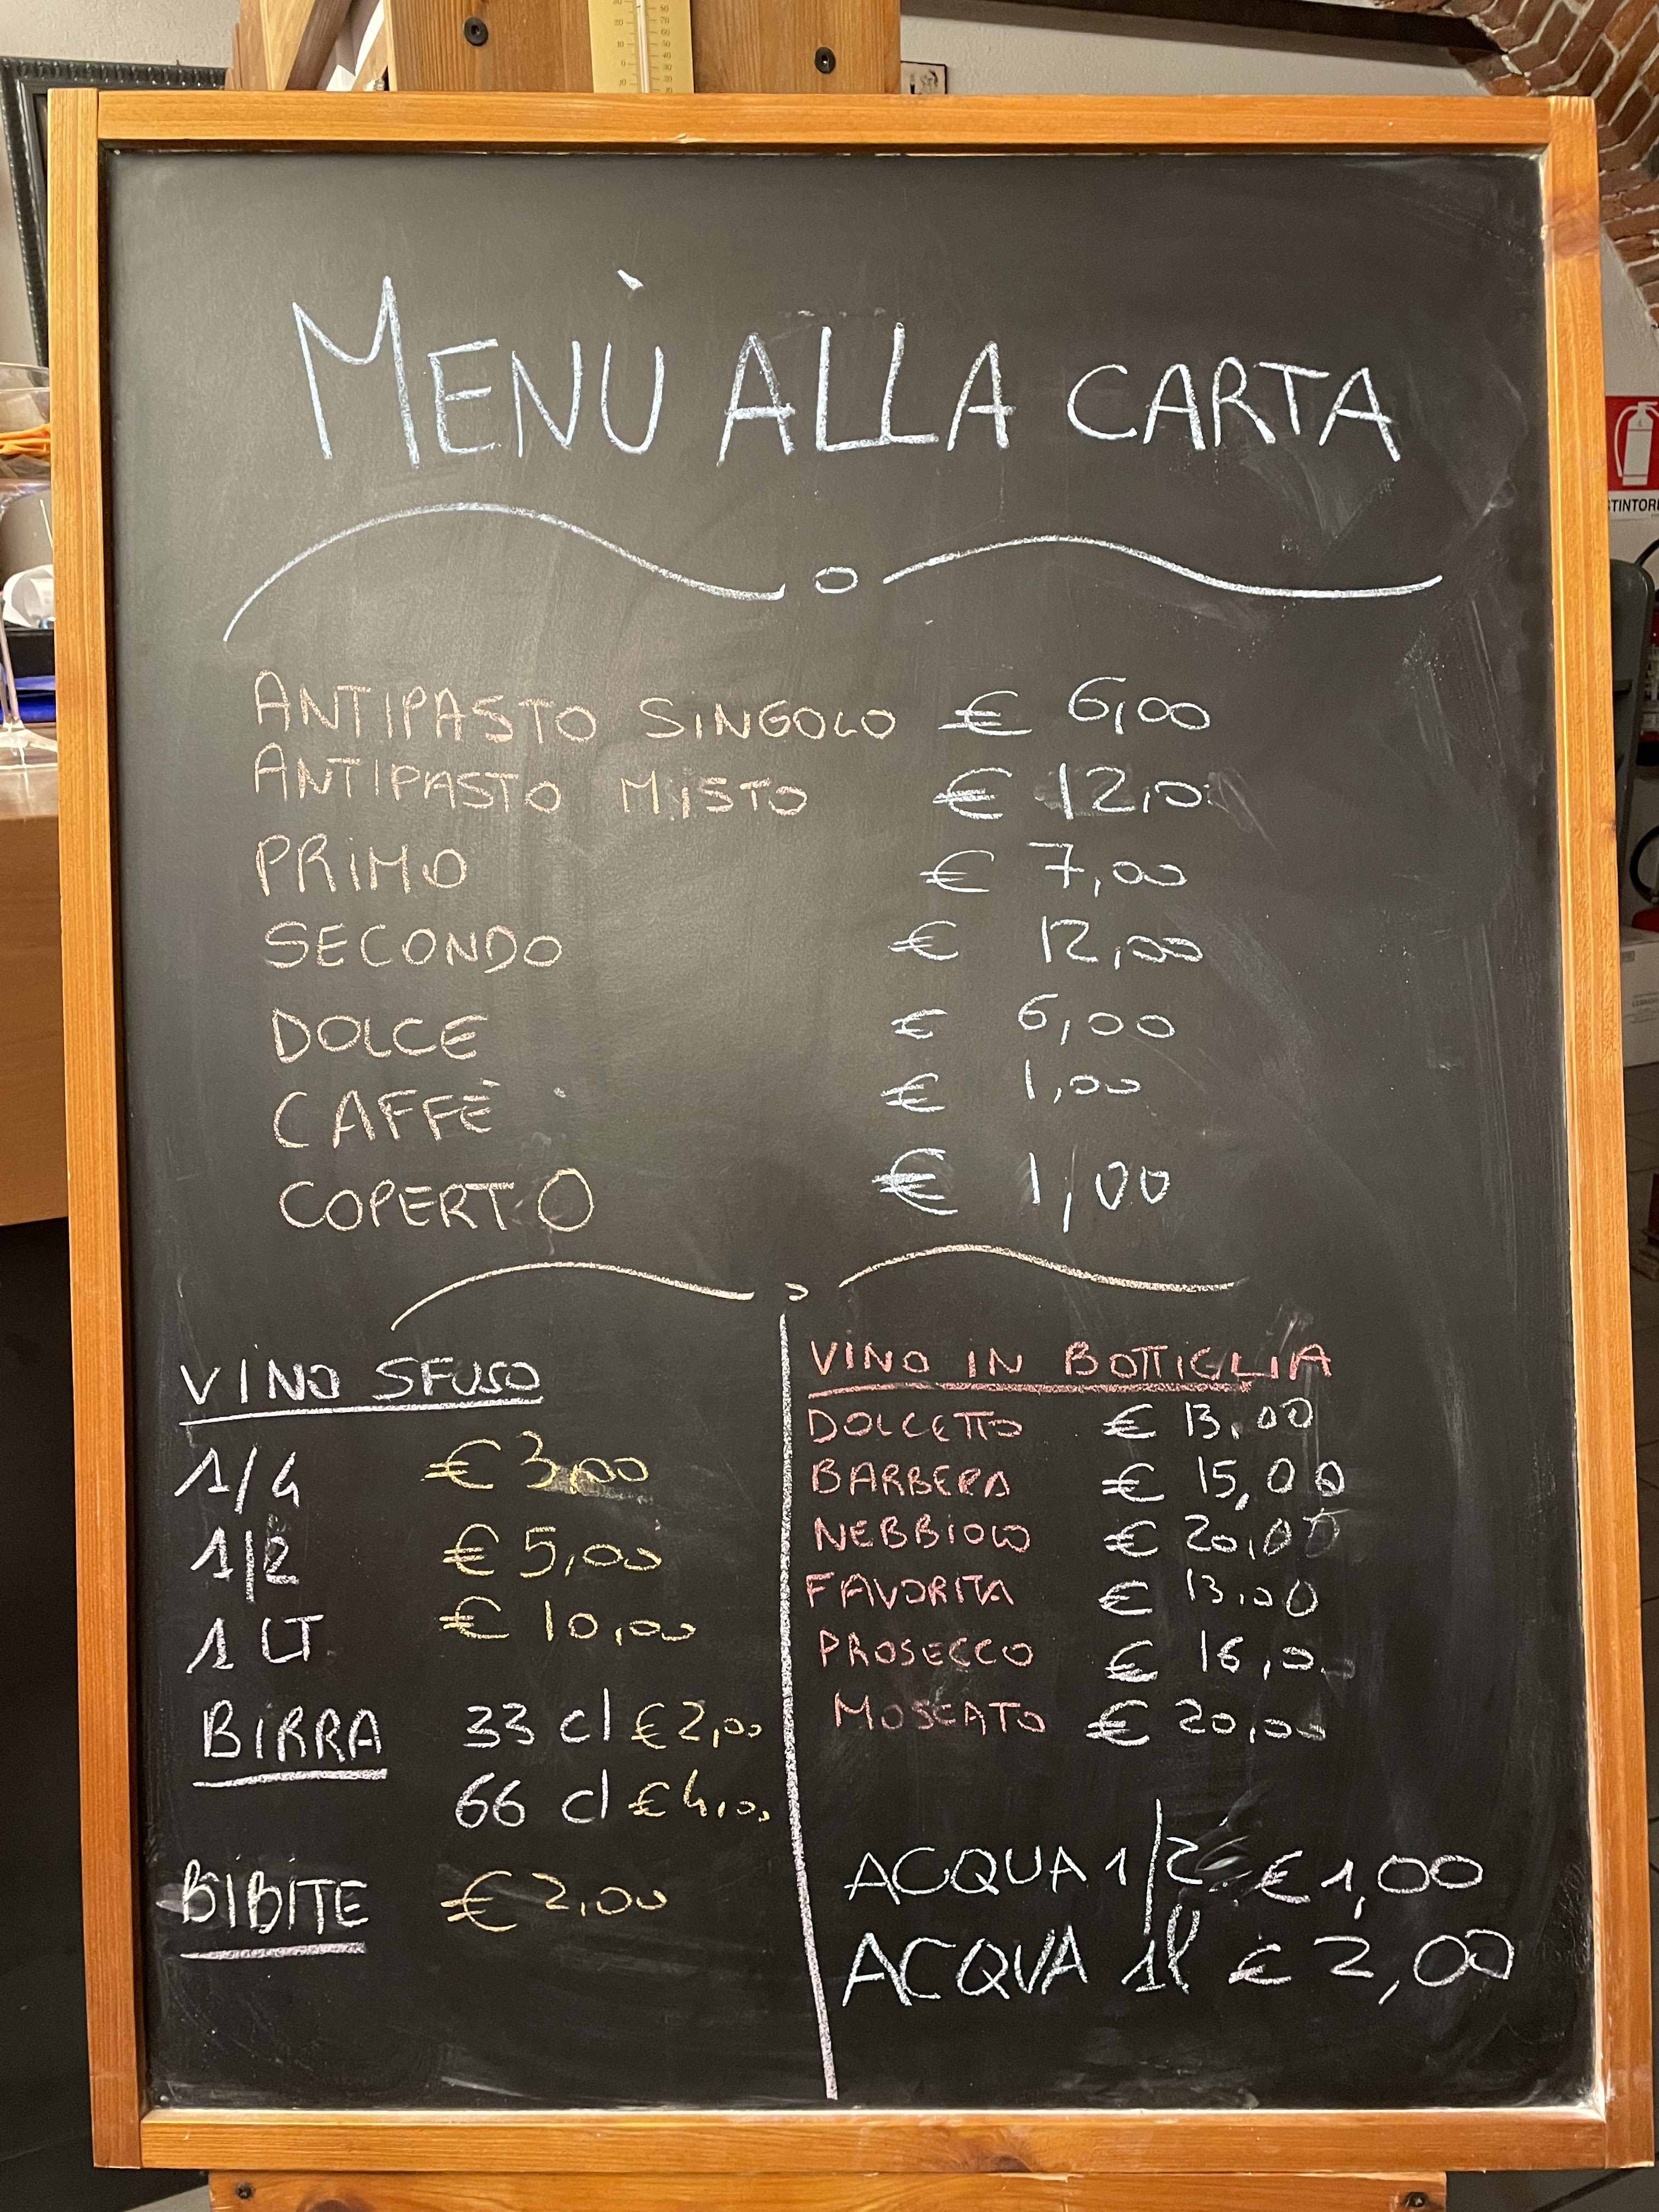 MENÙ ALLA CARTA
ANTIPASTO SINGOLO € 6,00
ANTIPASTO MISTO € 12,00
PRIMO € 7,00
SECONDO € 12,00
DOLCE € 6,00
CAFFÈ € 1,00
COPERTO € 1,00
VINO SFUSO
1/4 € 3,00
1/2 € 5,00
1 LT € 10,00
BIRRA 33 cl € 2,00
66 cl € 4,00
BIBITE € 2,00
VINO IN BOTTIGLIA
DOLCETTO € 13,00
BARBERA € 15,00
NEBBIOLO € 20,00
FAVORITA € 13,00
PROSECCO € 16,00
MOSCATO € 20,00
ACQUA 1/2 € 1,00
ACQUA 1l € 2,00
STINTORE